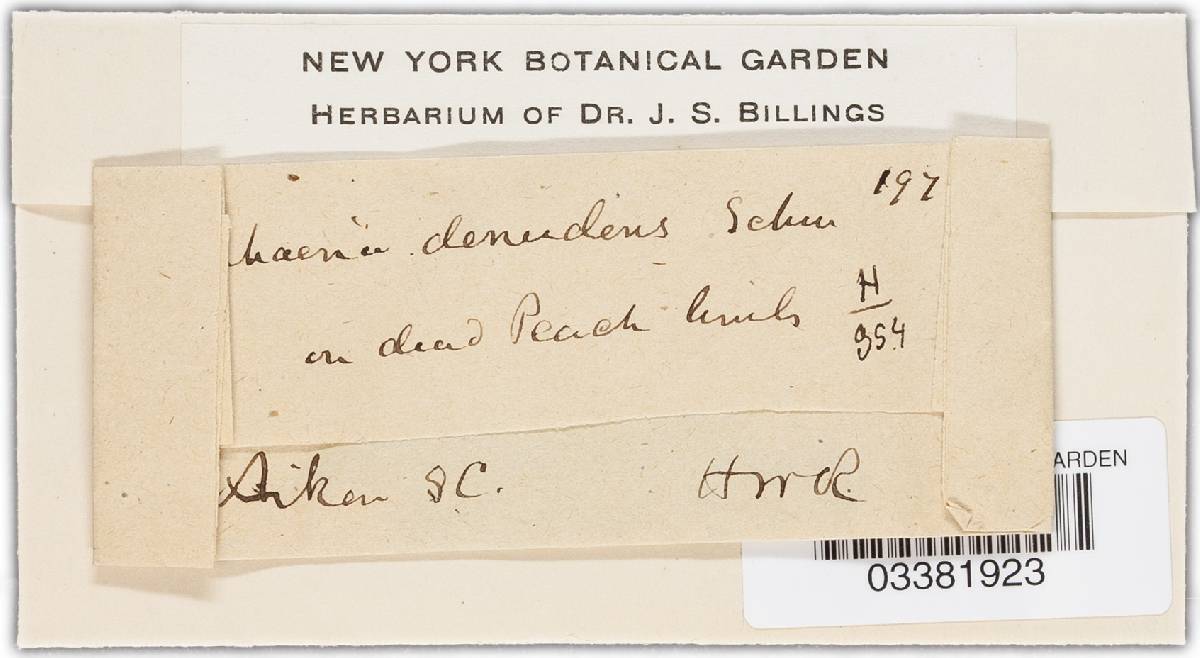 NEW YORK BOTANICAL GARDEN
HERBARIUM OF DR. J. S. BILLINGS
haeria denudens Schw 197
on dead Peach limbs H
954
Aiken S C. HWR
ARDEN
03381923